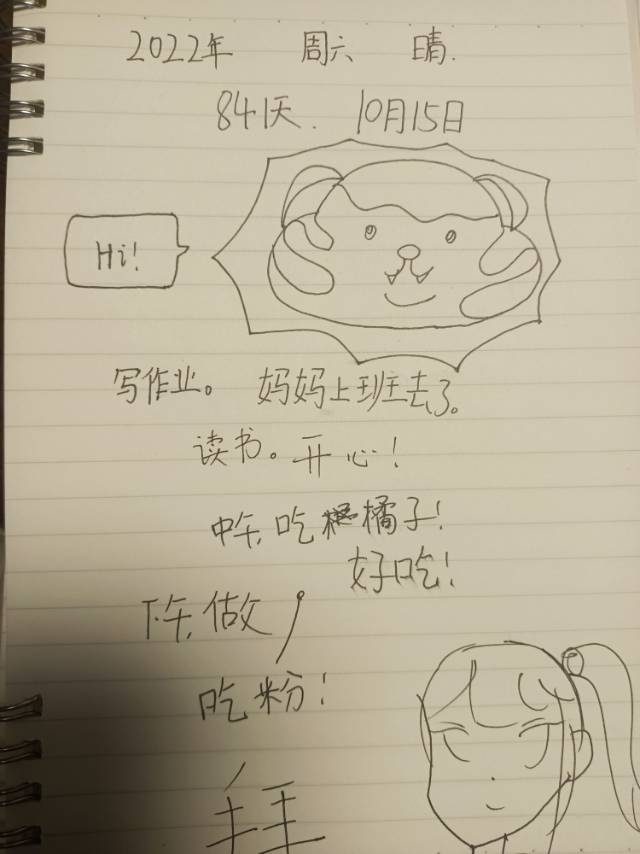 2022年 周六 晴.
841天. 10月15日
Hi!
写作业。 妈妈上班去了。
读书。开心!
中午,吃橘子!
好吃!
下午,做
吃粉!